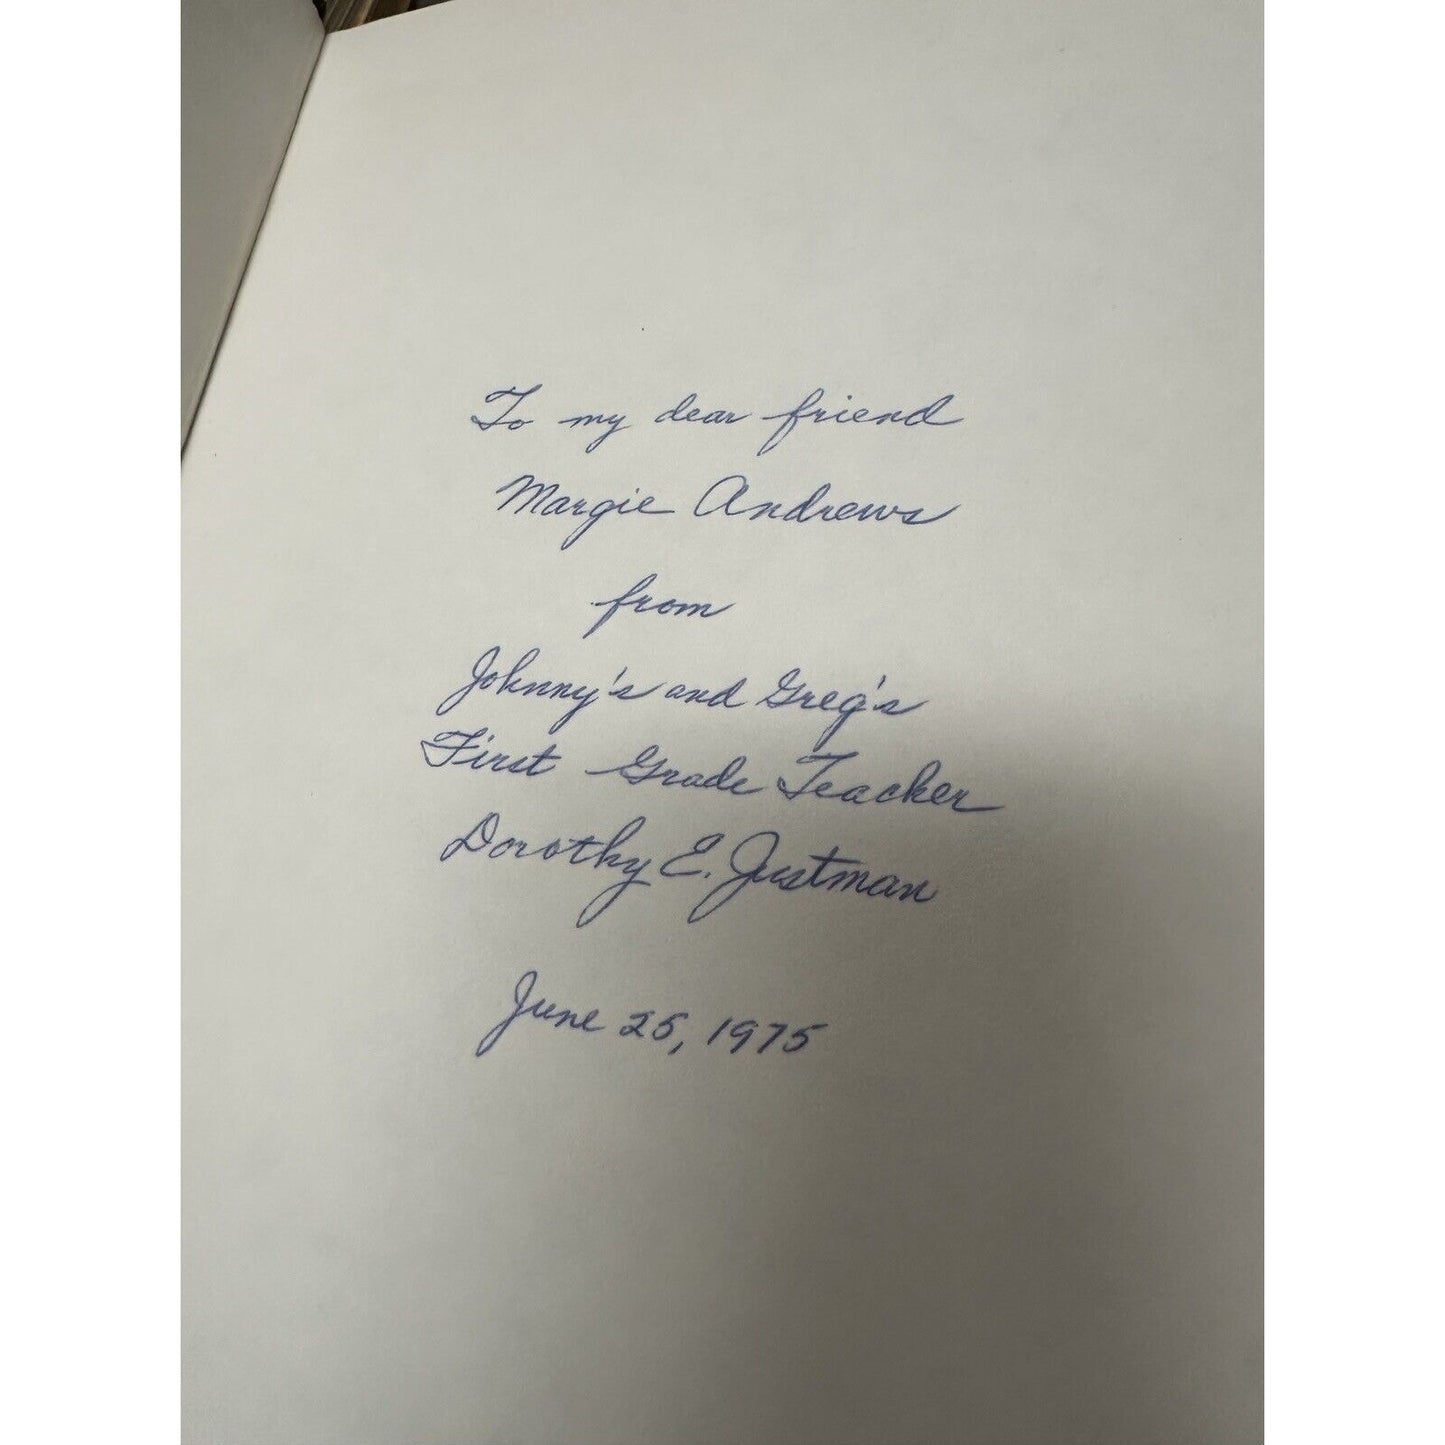 To my dear friend
Margie Andrews
from
Johnny's and Greg's
First Grade Teacher
Dorothy E. Justman
June 25, 1975